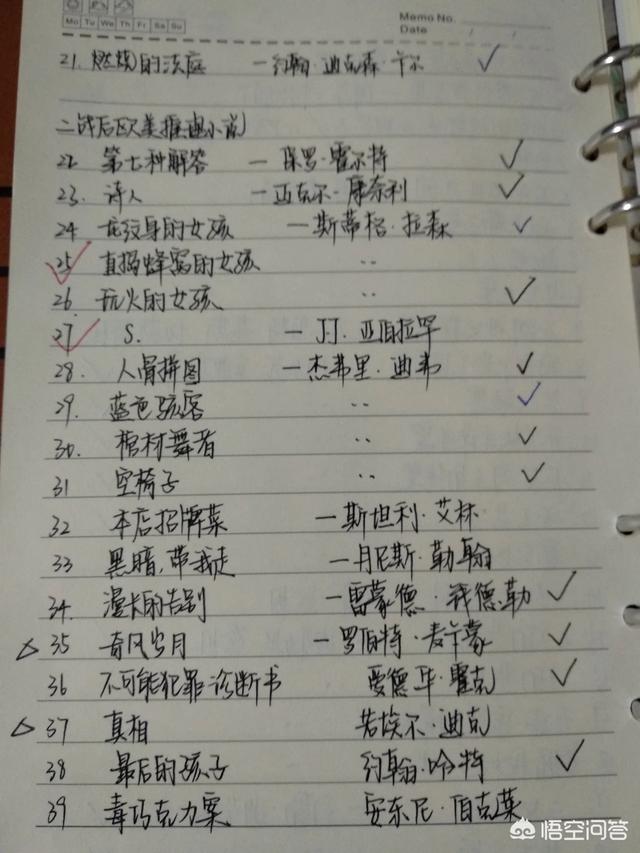 Memo No.
Mo Tu We Th Fr Sa Su
Date
21. 燃烧的法庭 —约翰·迪克森·卡尔 ✓
二战后欧美推理小说
22 第七种解答 —保罗·霍尔特 ✓
23. 诗人 —迈克尔·康奈利 ✓
24 龙纹身的女孩 —斯蒂格·拉森 ✓
25 直捣蜂窝的女孩 ..
26. 玩火的女孩 .. ✓
27 S. —JJ.亚伯拉罕
28. 人骨拼图 —杰弗里·迪弗 ✓
29. 蓝色骇客 .. ✓
30. 棺材舞者 .. ✓
31 空椅子 .. ✓
32 本店招牌菜 —斯坦利·艾林
33 黑暗,带我走 —丹尼斯·勒翰
34. 漫长的告别 —雷蒙德·钱德勒 ✓
△ 35 奇风岁月 —罗伯特·麦卡蒙 ✓
36 不可能犯罪诊断书 爱德华·霍克 ✓
△ 37 真相 若埃尔·迪克
38 最后的孩子 约翰·哈特 ✓
39 毒巧克力案 安东尼·伯克莱
悟空问答